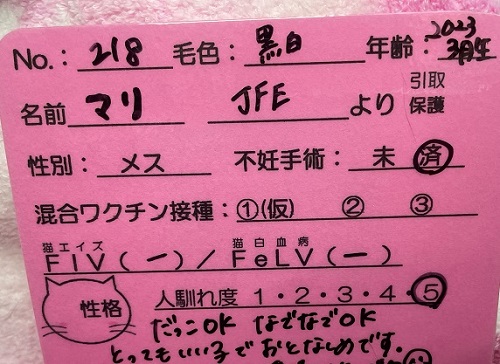 No.: 218 毛色: 黒白 年齢: 2023 3月生
名前 マリ JFEより 引取 保護
性別: メス 不妊手術: 未 済
混合ワクチン接種: ①(仮) ② ③
猫エイズ 猫白血病
FIV(ー)/FeLV(ー)
性格 人馴れ度 1・2・3・4・⑤
だっこOK なでなでOK
とってもいい子でおとなしめです。